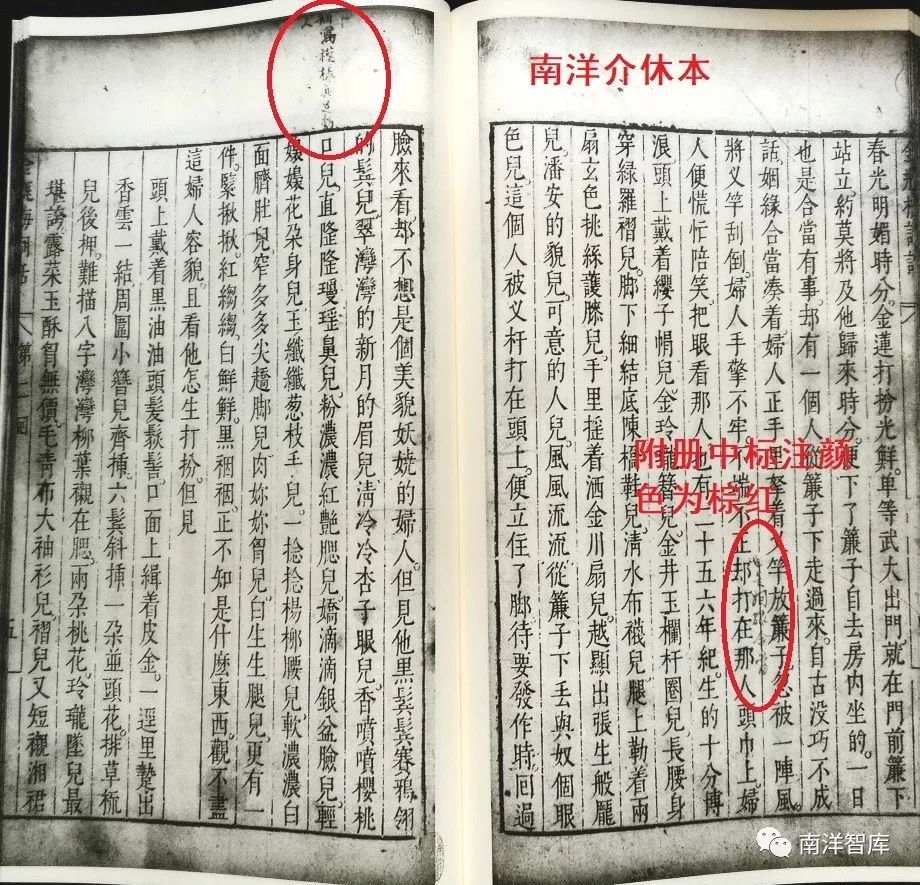 南洋介休本
春光明媚時分。金蓮打扮光鮮。单等武大出門。就在門前簾下
站立。約莫將及他歸來時分。便下了簾子自去房内坐的。一日
也是合當有事。却有一個人從簾子下走過來。自古没巧不成
話。姻緣合當湊着。婦人正手里拏着乂竿放簾子。忽被一陣風
將乂竿刮倒。婦人手擎不牢不端不正却打在那人頭巾上。婦
人便慌忙陪笑。把眼看那人。也有二十五六年紀。生的十分博
浪。頭上戴着纓子帽兒。金玲瓏簪兒。金井玉欄杆圈兒。長腰身
穿緑羅褶兒。脚下細結底陳橋鞋兒。清水布襪兒。腿上勒着兩
扇玄色挑絲護膝兒。手里摇着洒金川扇兒。越顯出張生般龎
兒。潘安的貌兒。可意的人兒。風風流流從簾子下丢與奴個眼
色兒。這個人被乂杆打在頭上。便立住了脚。待要發作時。囘過
附册中标注颜
色为棕红
臉來看却不想是個美貌妖娆的婦人。但見他黑鬒鬒賽鴉翎
的鬓兒。翠灣灣的新月的眉兒。清冷冷杏子眼兒。香噴噴櫻桃
口兒。直隆隆瓊瑶鼻兒。粉濃濃紅艷腮兒。嬌滴滴銀盆臉兒。輕
嬝嬝花朵身兒。玉纖纖葱枝手兒。一捻捻楊柳腰兒。軟濃濃白
面臍肚兒。窄多多尖趫脚兒。肉妳妳胷兒。白生生腿兒。更有一
件。緊揪揪。紅縐縐。白鮮鮮。黑裀裀。正不知是什麽東西。觀不盡
這婦人容貌。且看他怎生打扮。但見
頭上戴着黑油油頭髮䯼髻。口面上緝着皮金。一逕里蟄出
香雲一結。周圍小簪兒齊插。六鬓斜插一朵並頭花。排草梳
兒後押。難描八字灣灣柳葉。襯在腮。兩朵桃花。玲瓏墜兒最
堪誇。露菜玉酥胷無價。毛青布大袖衫兒。褶兒又短。襯湘裙
第二囘
五
南洋智库